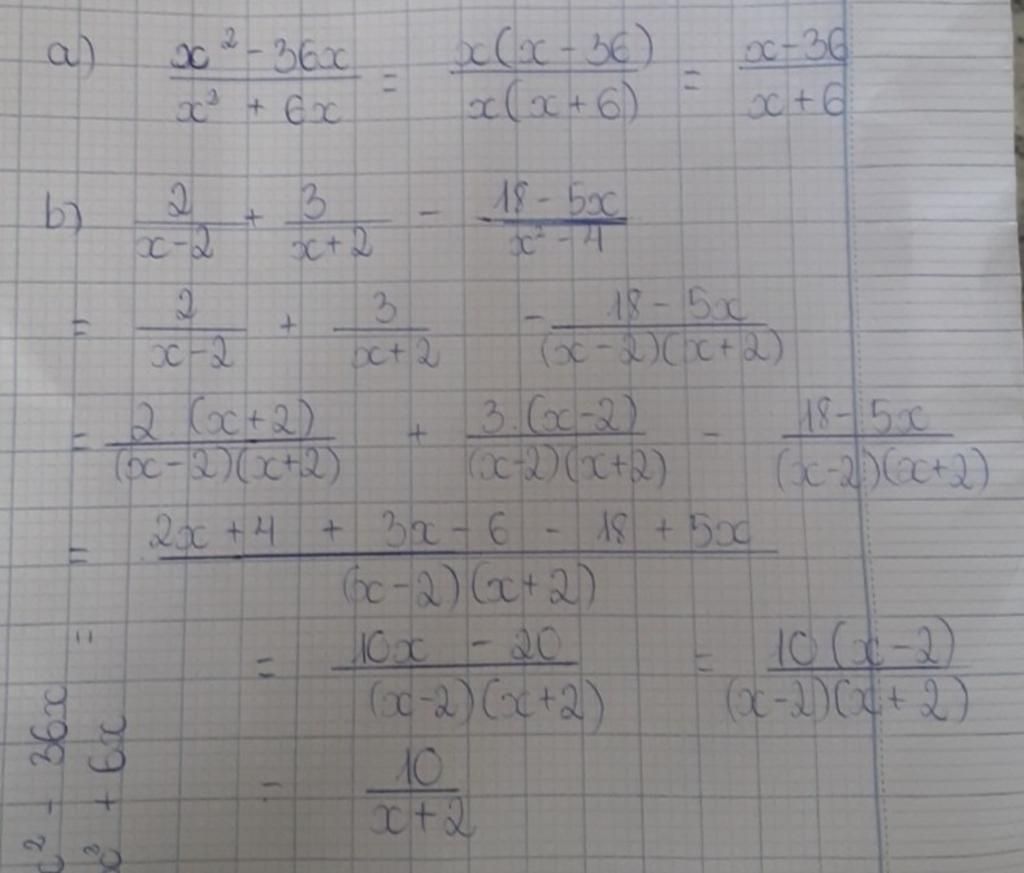 a) x² - 36x / x³ + 6x = x(x - 36) / x(x + 6) = x - 36 / x + 6
b) 2 / x - 2 + 3 / x + 2 - 18 - 5x / x² - 4
= 2 / x - 2 + 3 / x + 2 - 18 - 5x / (x - 2)(x + 2)
= 2 (x + 2) / (x - 2)(x + 2) + 3.(x - 2) / (x - 2)(x + 2) - 18 - 5x / (x - 2)(x + 2)
= 2x + 4 + 3x - 6 - 18 + 5x / (x - 2)(x + 2)
= 10x - 20 / (x - 2)(x + 2) = 10(x - 2) / (x - 2)(x + 2)
= 10 / x + 2
x² - 36x / x³ + 6x =